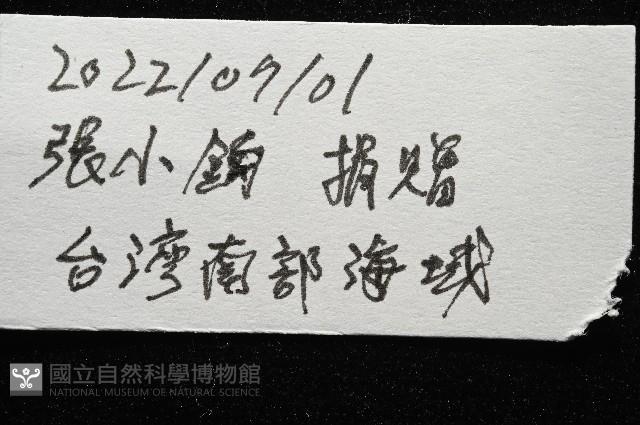 2022/07/01
張小鈎 捐贈
台灣南部海域
國立自然科學博物館
NATIONAL MUSEUM OF NATURAL SCIENCE